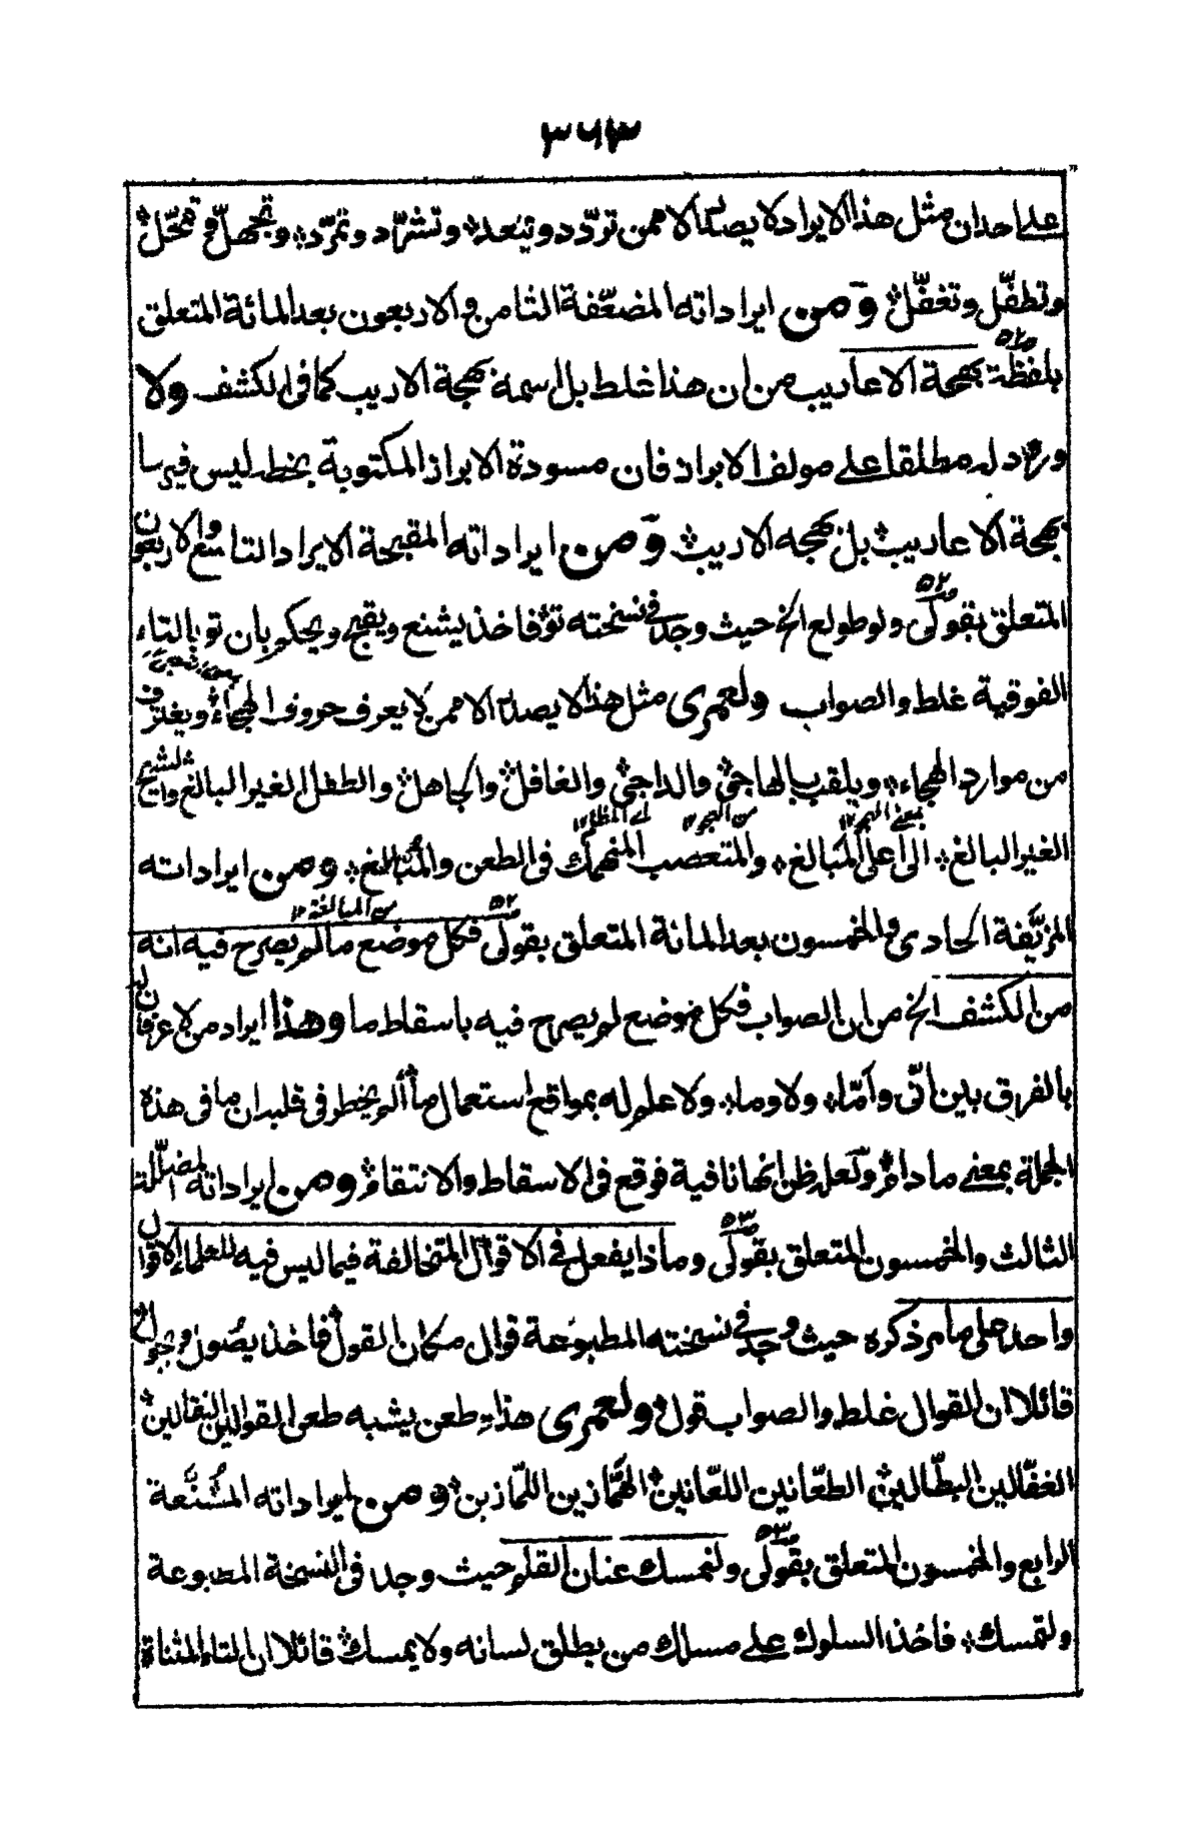 ٣٦٣
على احد ان مثل هذا الايراد لا يصدر الا ممن تردّد وتبعد وتشرّد وتمرّد وتجهل وتمحّل
وتطفّل وتغفّل ومن ايراداته المضعّفة الثامن والاربعون بعد المائة المتعلق
بلفظة بهجة الاعاريب من ان هذا غلط بل اسمه بهجة الاريب كما فى الكشف ولا
ورود له مطلقا على مولف الابراز فان مسودة الابراز المكتوبة بخطه ليس فيها
بهجة الاعاريب بل بهجه الاريب ومن ايراداته المقبحة الايراد التاسع والاربعون
المتعلق بقولى ولو طولع الخ حيث وجد فى نسخته توفاخذ يشنع ويقبح ويحكم بان تو بالتاء
الفوقية غلط والصواب ولعمرى مثل هذا لا يصدر الا ممن لا يعرف حروف الهجاء ويغترف
من موارد الهجاء ويلقب بالهاجى والداجى والغافل والجاهل والطفل الغير البالغ والشيخ
الغير البالغ الى اعلى المبالغ والمتعصب المنهمك فى الطعن والمبالغ ومن ايراداته
بمعنى الهجو ١٢ من الهجو ١٢
من المبالغة ١٢
المزيّفة الحادى والخمسون بعد المائة المتعلق بقولى فكل موضع ما لم يصرح فيه انه
من الكشف الخ من ان الصواب فكل موضع لم يصرح فيه باسقاط ما وهذا ايراد من لا عرفان له
بالفرق بين انّى وامّا ولا وما ولا علم له بمواقع استعمال ما ألم يخطر فى قلبه ان ما فى هذه
الجملة بمعنى ما دام ولعله ظن انها نافية فوقع فى الاسقاط والانتقام ومن ايراداته المضلّلة
الثالث والخمسون المتعلق بقولى وماذا يفعل فى الاقوال المتخالفة فيما ليس فيه للعلماء الاقوال
واحد على ما مر ذكره حيث وجد فى نسخته المطبوعة قوال مكان القول فاخذ يصول ويجول
قائلا ان القوال غلط والصواب قول ولعمرى هذا طعن يشبه طعن القوالين النقالين
الغفّالين البطّالين الطعّانين اللعّانين الهمّازين اللمّازين ومن ايراداته المشنّعة
الرابع والخمسون المتعلق بقولى ولنمسك عنان القلم حيث وجد فى النسخة المطبوعة
ولتمسك فاخذ السلوك على مسلك من يطلق لسانه ولا يمسك قائلا ان التاء المثناة